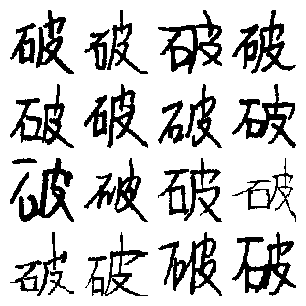 破破破破
破破破破
破破破破
破破破破